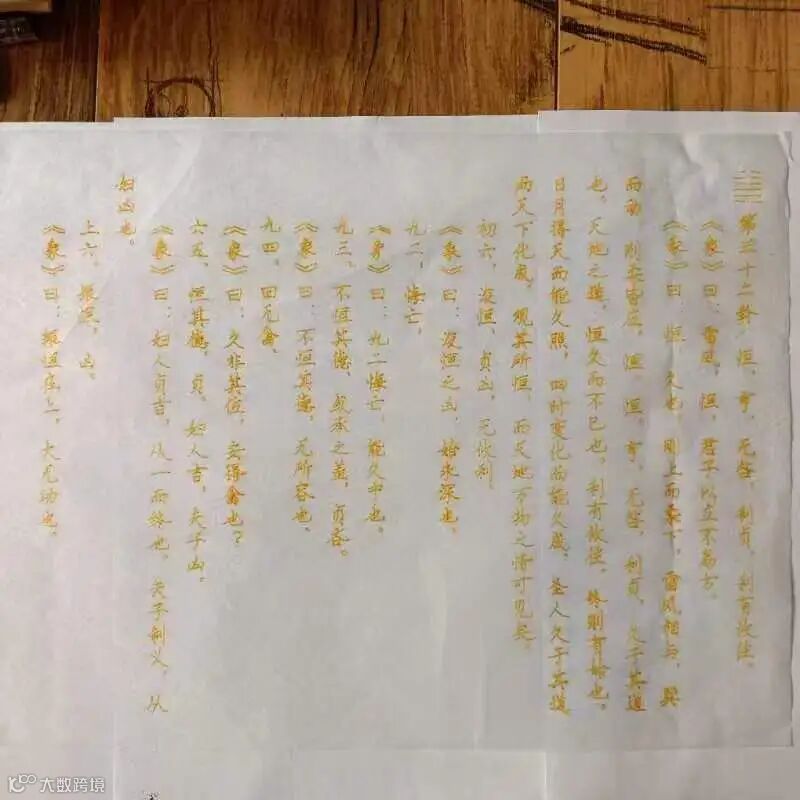 第三十二卦，恒，亨，无咎，利贞，利有攸往。
《象》曰：雷风，恒，君子以立不易方。
《彖》曰：恒，久也，刚上而柔下，雷风相与，巽
而动，刚柔皆应，恒。恒，亨，无咎，利贞，久于其道
也，天地之道，恒久而不已也。利有攸往，终则有始也。
日月得天而能久照，四时变化而能久成，圣人久于其道
而天下化成，观其所恒，而天地万物之情可见矣。
初六，浚恒，贞凶，无攸利
《象》曰：浚恒之凶，始求深也。
九二，悔亡，
《象》曰：九二悔亡，能久中也。
九三，不恒其德，或承之羞，贞吝。
《象》曰：不恒其德，无所容也。
九四，田无禽。
《象》曰：久非其位，安得禽也？
六五，恒其德，贞，妇人吉，夫子凶。
《象》曰：妇人贞吉，从一而终也，夫子制义，从
妇凶也。
上六，振恒，凶。
《象》曰：振恒在上，大无功也。
大数跨境